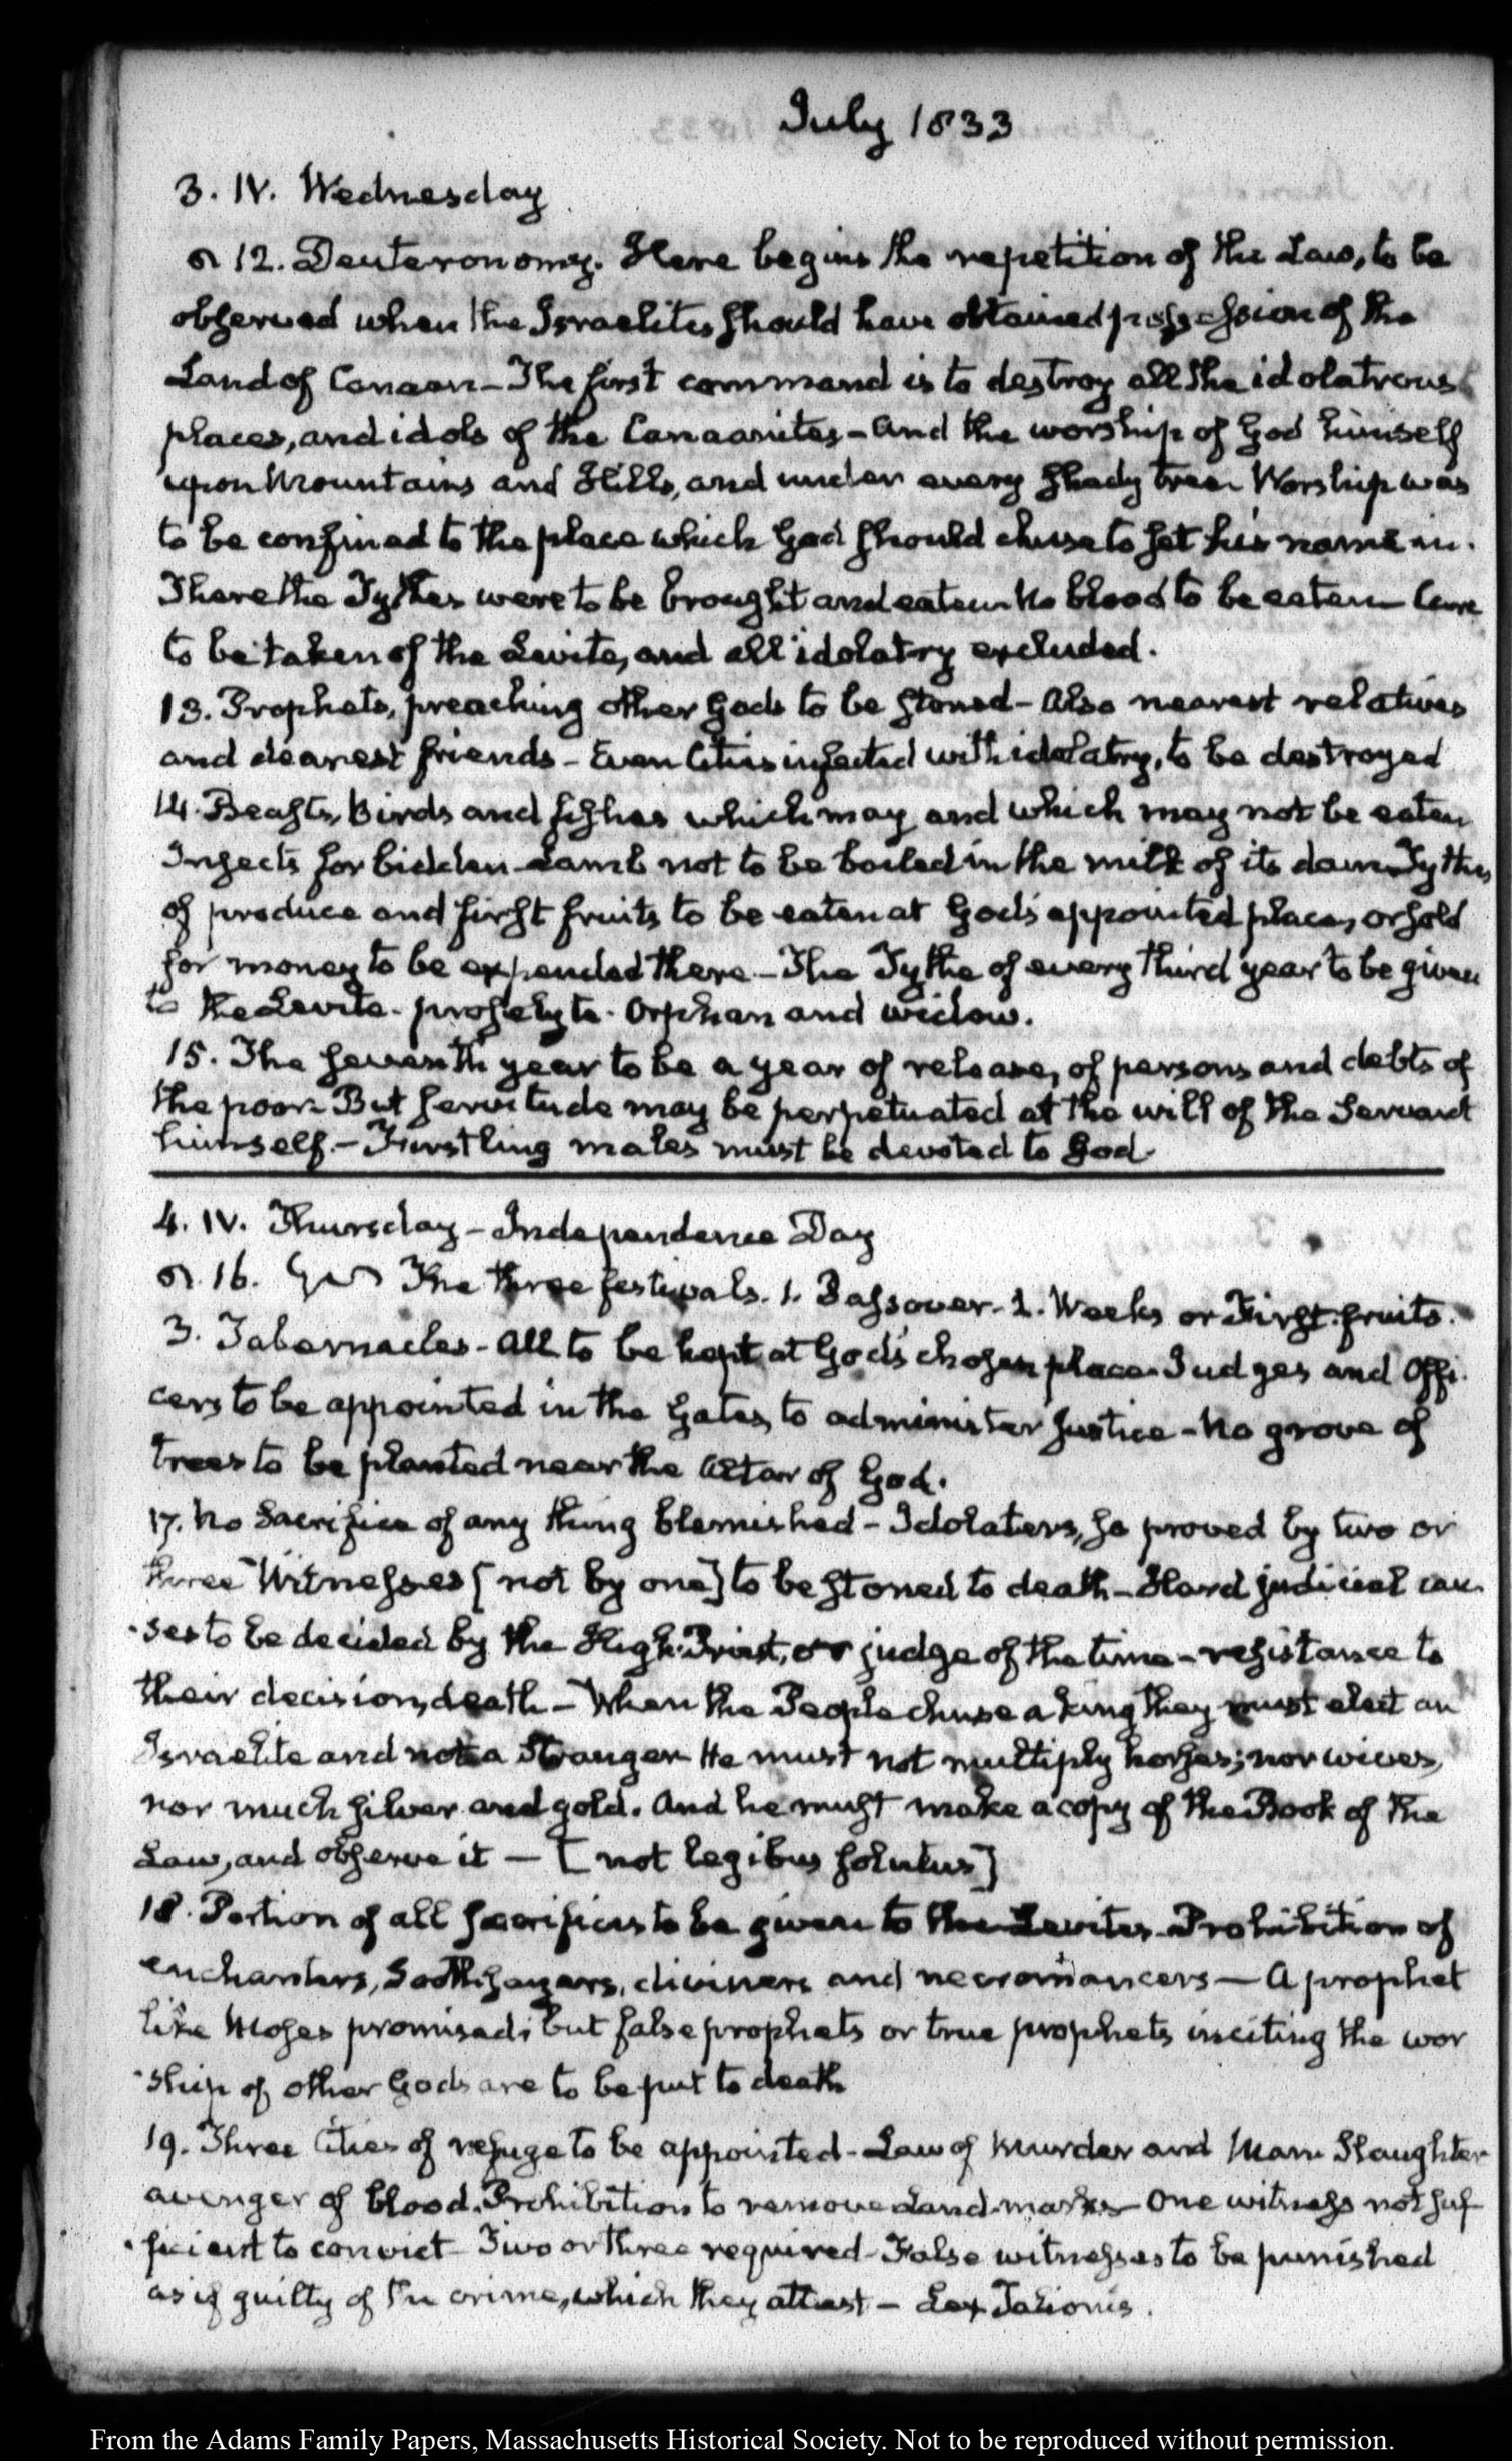 July 1833
3. IV. Wednesday
12. Deuteronomy. Here begins the repetition of the Law, to be
observed when the Israelites should have obtained possession of the
Land of Canaan - The first command is to destroy all the idolatrous
places, and idols of the Canaanites - And the worship of God himself
upon Mountains and Hills, and under every shady tree. Worship was
to be confined to the place which God should chuse to set his name in.
There the Tythes were to be brought and eaten. No blood to be eaten - Care
to be taken of the Levite, and all idolatry excluded.
13. Prophets, preaching other Gods to be stoned - Also nearest relatives
and dearest friends - Even Cities infected with idolatry, to be destroyed
14. Beasts, Birds and fishes which may and which may not be eaten
Insects forbidden - Lamb not to be boiled in the milk of its dam - Tythes
of produce and first fruits to be eaten at God's appointed place, or sold
for money to be expended there. - The Tythe of every third year to be given
to the Levite - proselyte - Orphan and widow.
15. The seventh year to be a year of release, of persons and debts of
the poor. But servitude may be perpetuated at the will of the Servant
himself. - Firstling males must be devoted to God.
4. IV. Thursday - Independence Day
16. The three festivals. 1. Passover - 2. Weeks or First-fruits.
3. Tabernacles - All to be kept at God's chosen place - Judges and Offi-
cers to be appointed in the Gates, to administer justice - No grove of
trees to be planted near the Altar of God.
17. No Sacrifice of any thing blemished - Idolaters, so proved by two or
three Witnesses [not by one] to be stoned to death - Hard judicial cau-
-ses to be decided by the High-Priest, or judge of the time - resistance to
their decision, death - When the People chuse a king they must elect an
Israelite and not a Stranger. He must not multiply horses; nor wives,
nor much silver and gold. And he must make a copy of the Book of the
Law, and observe it — [not legibus solutus]
18. Portion of all sacrifices to be given to the Levites - Prohibition of
enchanters, Soothsayers, diviners and necromancers — A prophet
like Moses promised; but false prophets or true prophets inciting the wor
-ship of other Gods are to be put to death
19. Three Cities of refuge to be appointed - Law of Murder and Man Slaughter
avenger of blood. Prohibition to remove Land-marks - One witness not suf-
-ficient to convict - Two or three required - False witnesses to be punished
as if guilty of the crime, which they attest - Lex Talionis.
From the Adams Family Papers, Massachusetts Historical Society. Not to be reproduced without permission.